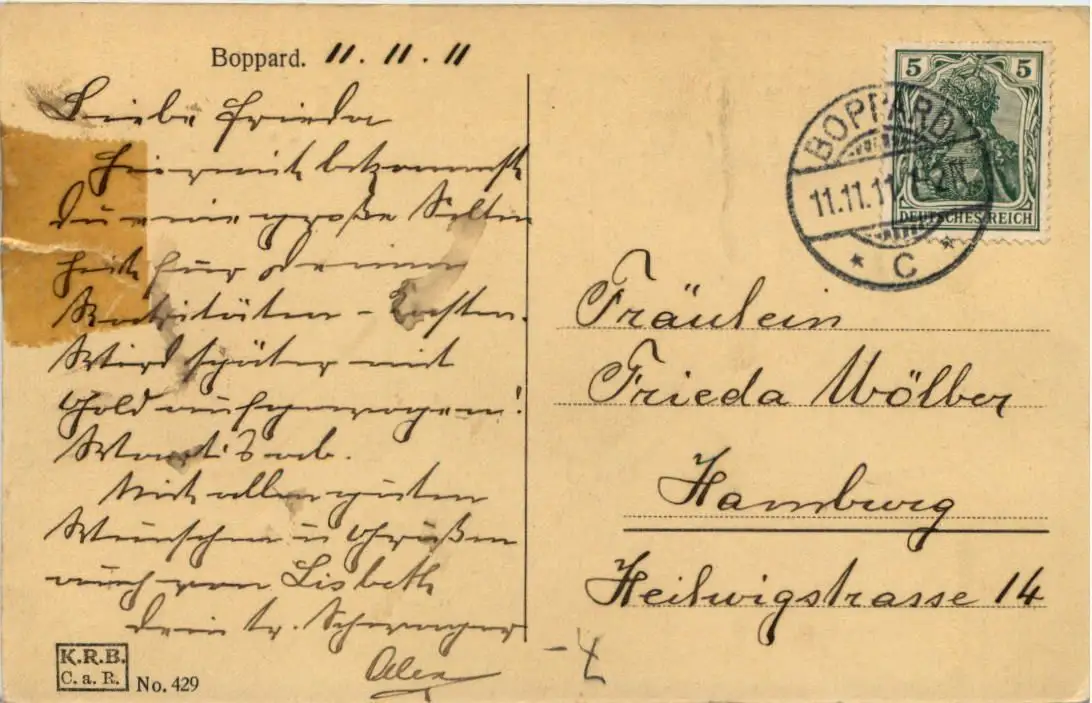 Boppard. 11. 11. 11
Liebe Frieda
Hiermit bekommst
Du eine große Selten
heit für deinen
Raritäten-Kasten.
Wird später mit
Gold aufgewogen!
Wart's ab.
Mit allen guten
Wünschen u Grüßen
auch von Lisbeth
Dein tr. Schwager
Alex
K.R.B.
C. a. R.
No. 429
5 5
DEUTSCHES REICH
BOPPARD
11.11.11
* C *
Fräulein
Frieda Wölber
Hamburg
Heilwigstrasse 14